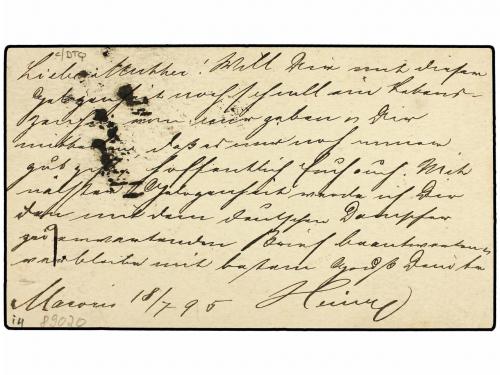 c/DTG
Liebe Mutter! Will Dir mit dieser
Gelegenheit noch schnell ein Lebens-
zeichen von mir geben u Dir
mittheilen daß es mir noch immer
gut geht, hoffentlich Euch auch. Mit
nächster Gelegenheit werde ich Dir
den mit dem deutschen Dampfer
zu erwartenden Brief beantworten
verbleibe mit bestem Gruß Dein
Macoris 18/7 95 Heinr
in 89020